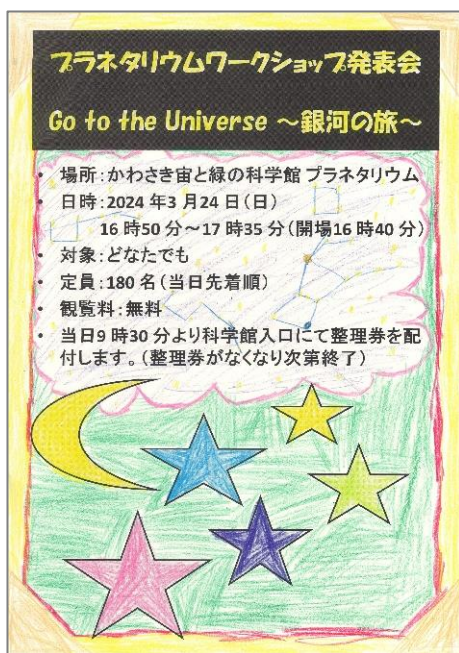 プラネタリウムワークショップ発表会
Go to the Universe ～銀河の旅～
• 場所：かわさき宙と緑の科学館 プラネタリウム
• 日時：2024 年3 月24 日（日）
16 時50 分～17 時35 分（開場16 時40 分）
• 対象：どなたでも
• 定員：180 名（当日先着順）
• 観覧料：無料
• 当日9 時30 分より科学館入口にて整理券を配
付します。（整理券がなくなり次第終了）